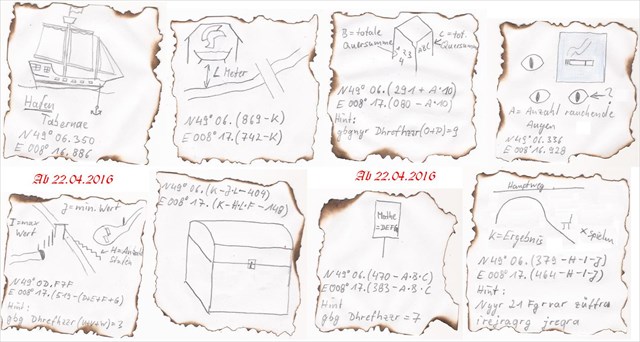 Hafen
Tabernae
N49° 06.350
E 008° 16.886
L Meter
N49° 06.(869-K)
E008° 17.(742-K)
B = totale
Quersumme
C = tot.
Quersumme
1 2 3
4
ABC
N49° 06.(291 + A·10)
E 008° 17.(080 - A·10)
Hint:
gbgnyr Dhrefhzzr(O+P)=9
A = Anzahl rauchende
Augen
N49° 06.336
E 008° 16.928
Ab 22.04.2016
Ab 22.04.2016
J=min. Wert
I=max
Wert
H=Anzahl
Stufen
N49° 0D.F7F
E 008° 17.(519-(D+E+F+G)
Hint:
gbg Dhrefhzzr =3
N49° 06.(K-J-L-404)
E 008° 17.(K-H-L-F-148)
Mathe
=DEFG
N49° 06.(470-A·B·C)
E 008° 17.(383-A·B·C
Hint
gbg Dhrefhzzr = 7
Hauptweg
K=Ergebnis
N49° 06.(379-H-I-J)
E 008° 17.(464-H-I-J)
Hint:
Nyyr 21 Fgrvar züffra
irejraqrg jreqra